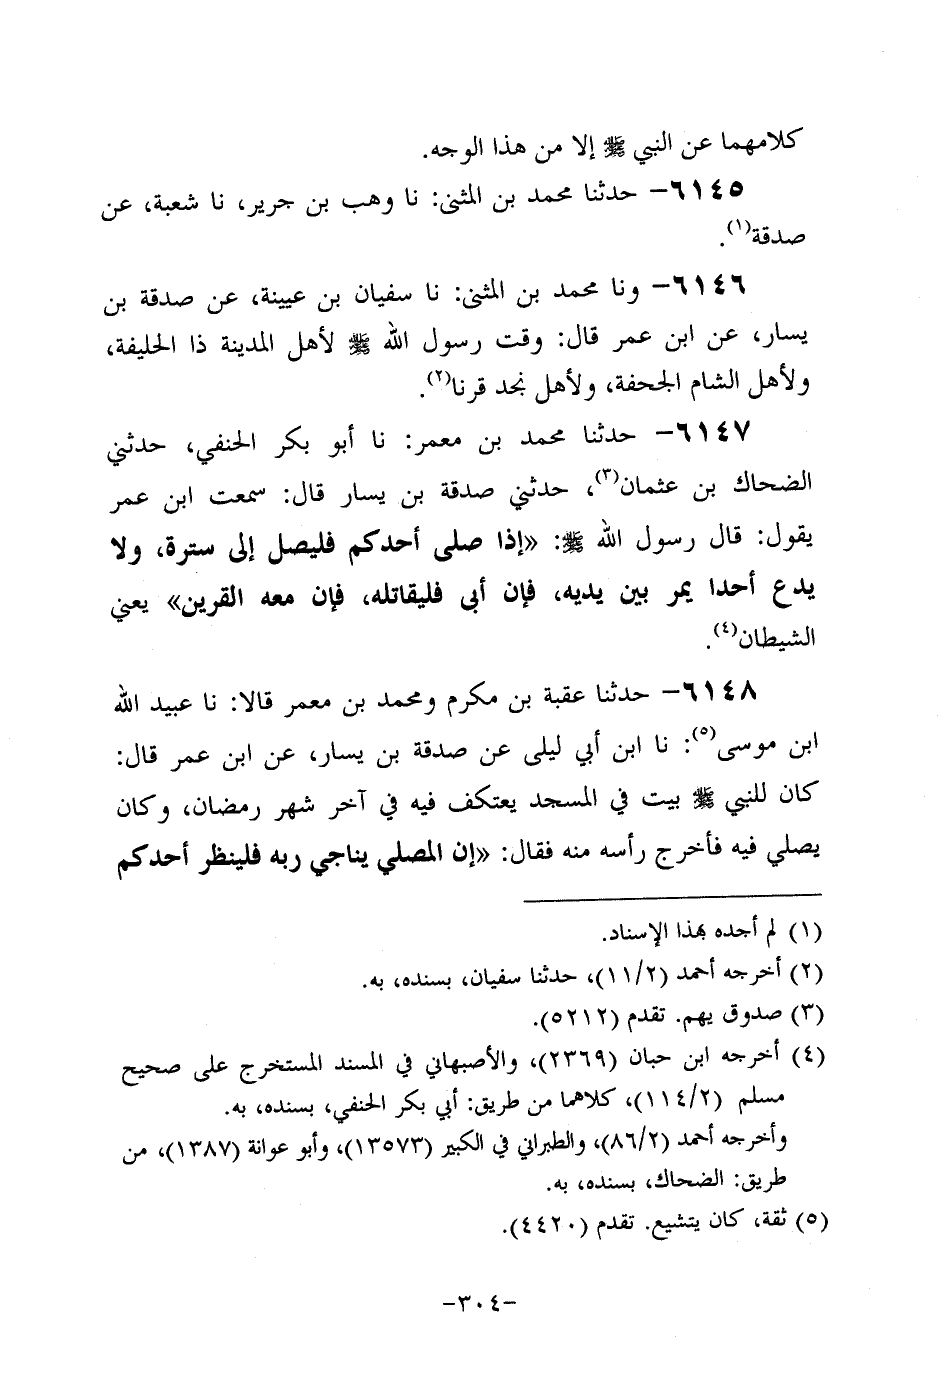 كلامهما عن النبي ﷺ إلا من هذا الوجه.
٦١٤٥- حدثنا محمد بن المثنى: نا وهب بن جرير، نا شعبة، عن
صدقة(١).
٦١٤٦- ونا محمد بن المثنى: نا سفيان بن عيينة، عن صدقة بن
يسار، عن ابن عمر قال: وقت رسول الله ﷺ لأهل المدينة ذا الحليفة،
ولأهل الشام الجحفة، ولأهل نجد قرنا(٢).
٦١٤٧- حدثنا محمد بن معمر: نا أبو بكر الحنفي، حدثني
الضحاك بن عثمان(٣)، حدثني صدقة بن يسار قال: سمعت ابن عمر
يقول: قال رسول الله ﷺ: «إذا صلى أحدكم فليصل إلى سترة، ولا
يدع أحدا يمر بين يديه، فإن أبى فليقاتله، فإن معه القرين» يعني
الشيطان(٤).
٦١٤٨- حدثنا عقبة بن مكرم ومحمد بن معمر قالا: نا عبيد الله
ابن موسى(٥): نا ابن أبي ليلى عن صدقة بن يسار، عن ابن عمر قال:
كان للنبي ﷺ بيت في المسجد يعتكف فيه في آخر شهر رمضان، وكان
يصلي فيه فأخرج رأسه منه فقال: «إن المصلي يناجي ربه فلينظر أحدكم
(١) لم أجده بهذا الإسناد.
(٢) أخرجه أحمد (١١/٢)، حدثنا سفيان، بسنده، به.
(٣) صدوق يهم. تقدم (٥٢١٢).
(٤) أخرجه ابن حبان (٢٣٦٩)، والأصبهاني في المسند المستخرج على صحيح
مسلم (١١٤/٢)، كلاهما من طريق: أبي بكر الحنفي، بسنده، به.
وأخرجه أحمد (٨٦/٢)، والطبراني في الكبير (١٣٥٧٣)، وأبو عوانة (١٣٨٧)، من
طريق: الضحاك، بسنده، به.
(٥) ثقة، كان يتشيع. تقدم (٤٤٢٠).
-٣٠٤-